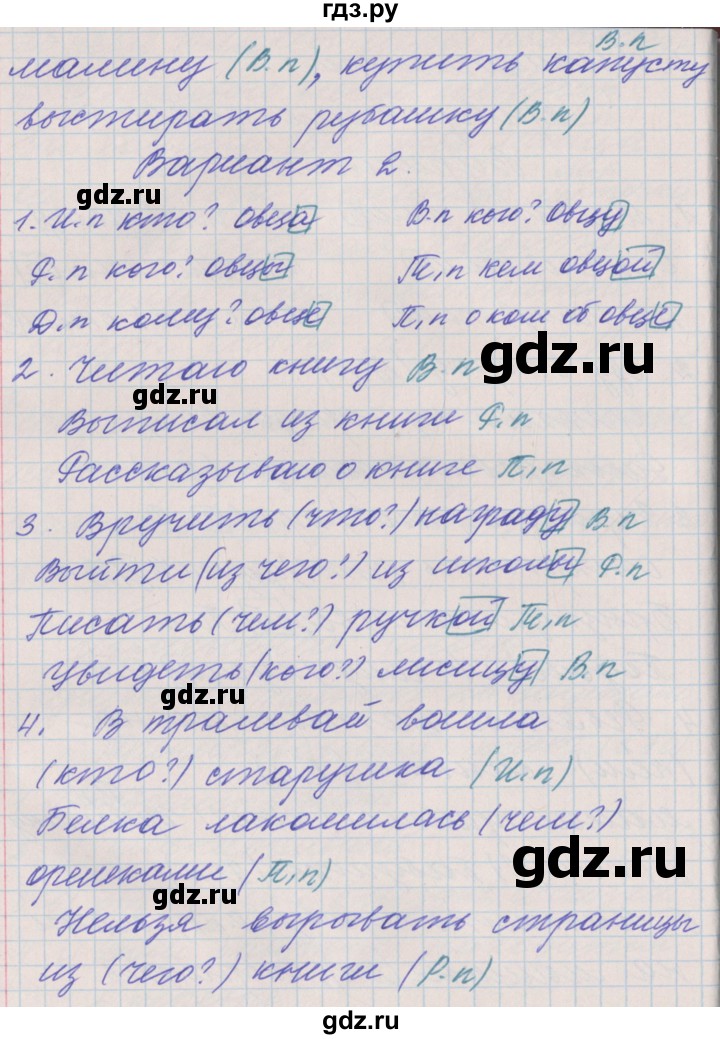 гдз.ру
В.п
малину (В.п), купить капусту
выстирать рубашку (В.п)
Вариант 2.
gdz.ru
1. И.п кто? овца В.п кого? овцу
Р.п кого? овцы Т.п кем овцой
Д.п кому? овце П.п о ком об овце
gdz.ru
gdz.ru
2. Читаю книгу В.п
gdz.ru
Выписал из книги Р.п
Рассказываю о книге П.п
gdz.ru
3. Вручить (что?) награду В.п
Выйти (из чего?) из школы Р.п
Писать (чем?) ручкой Т.п
Увидеть (кого?) лисицу В.п
gdz.ru
4. В трамвай вошла
(кто?) старушка (И.п)
Белка лакомилась (чем?)
gdz.ru
орешками (П.п)
gdz.ru
Нельзя вырывать страницы
из (чего?) книги (Р.п)
gdz.ru